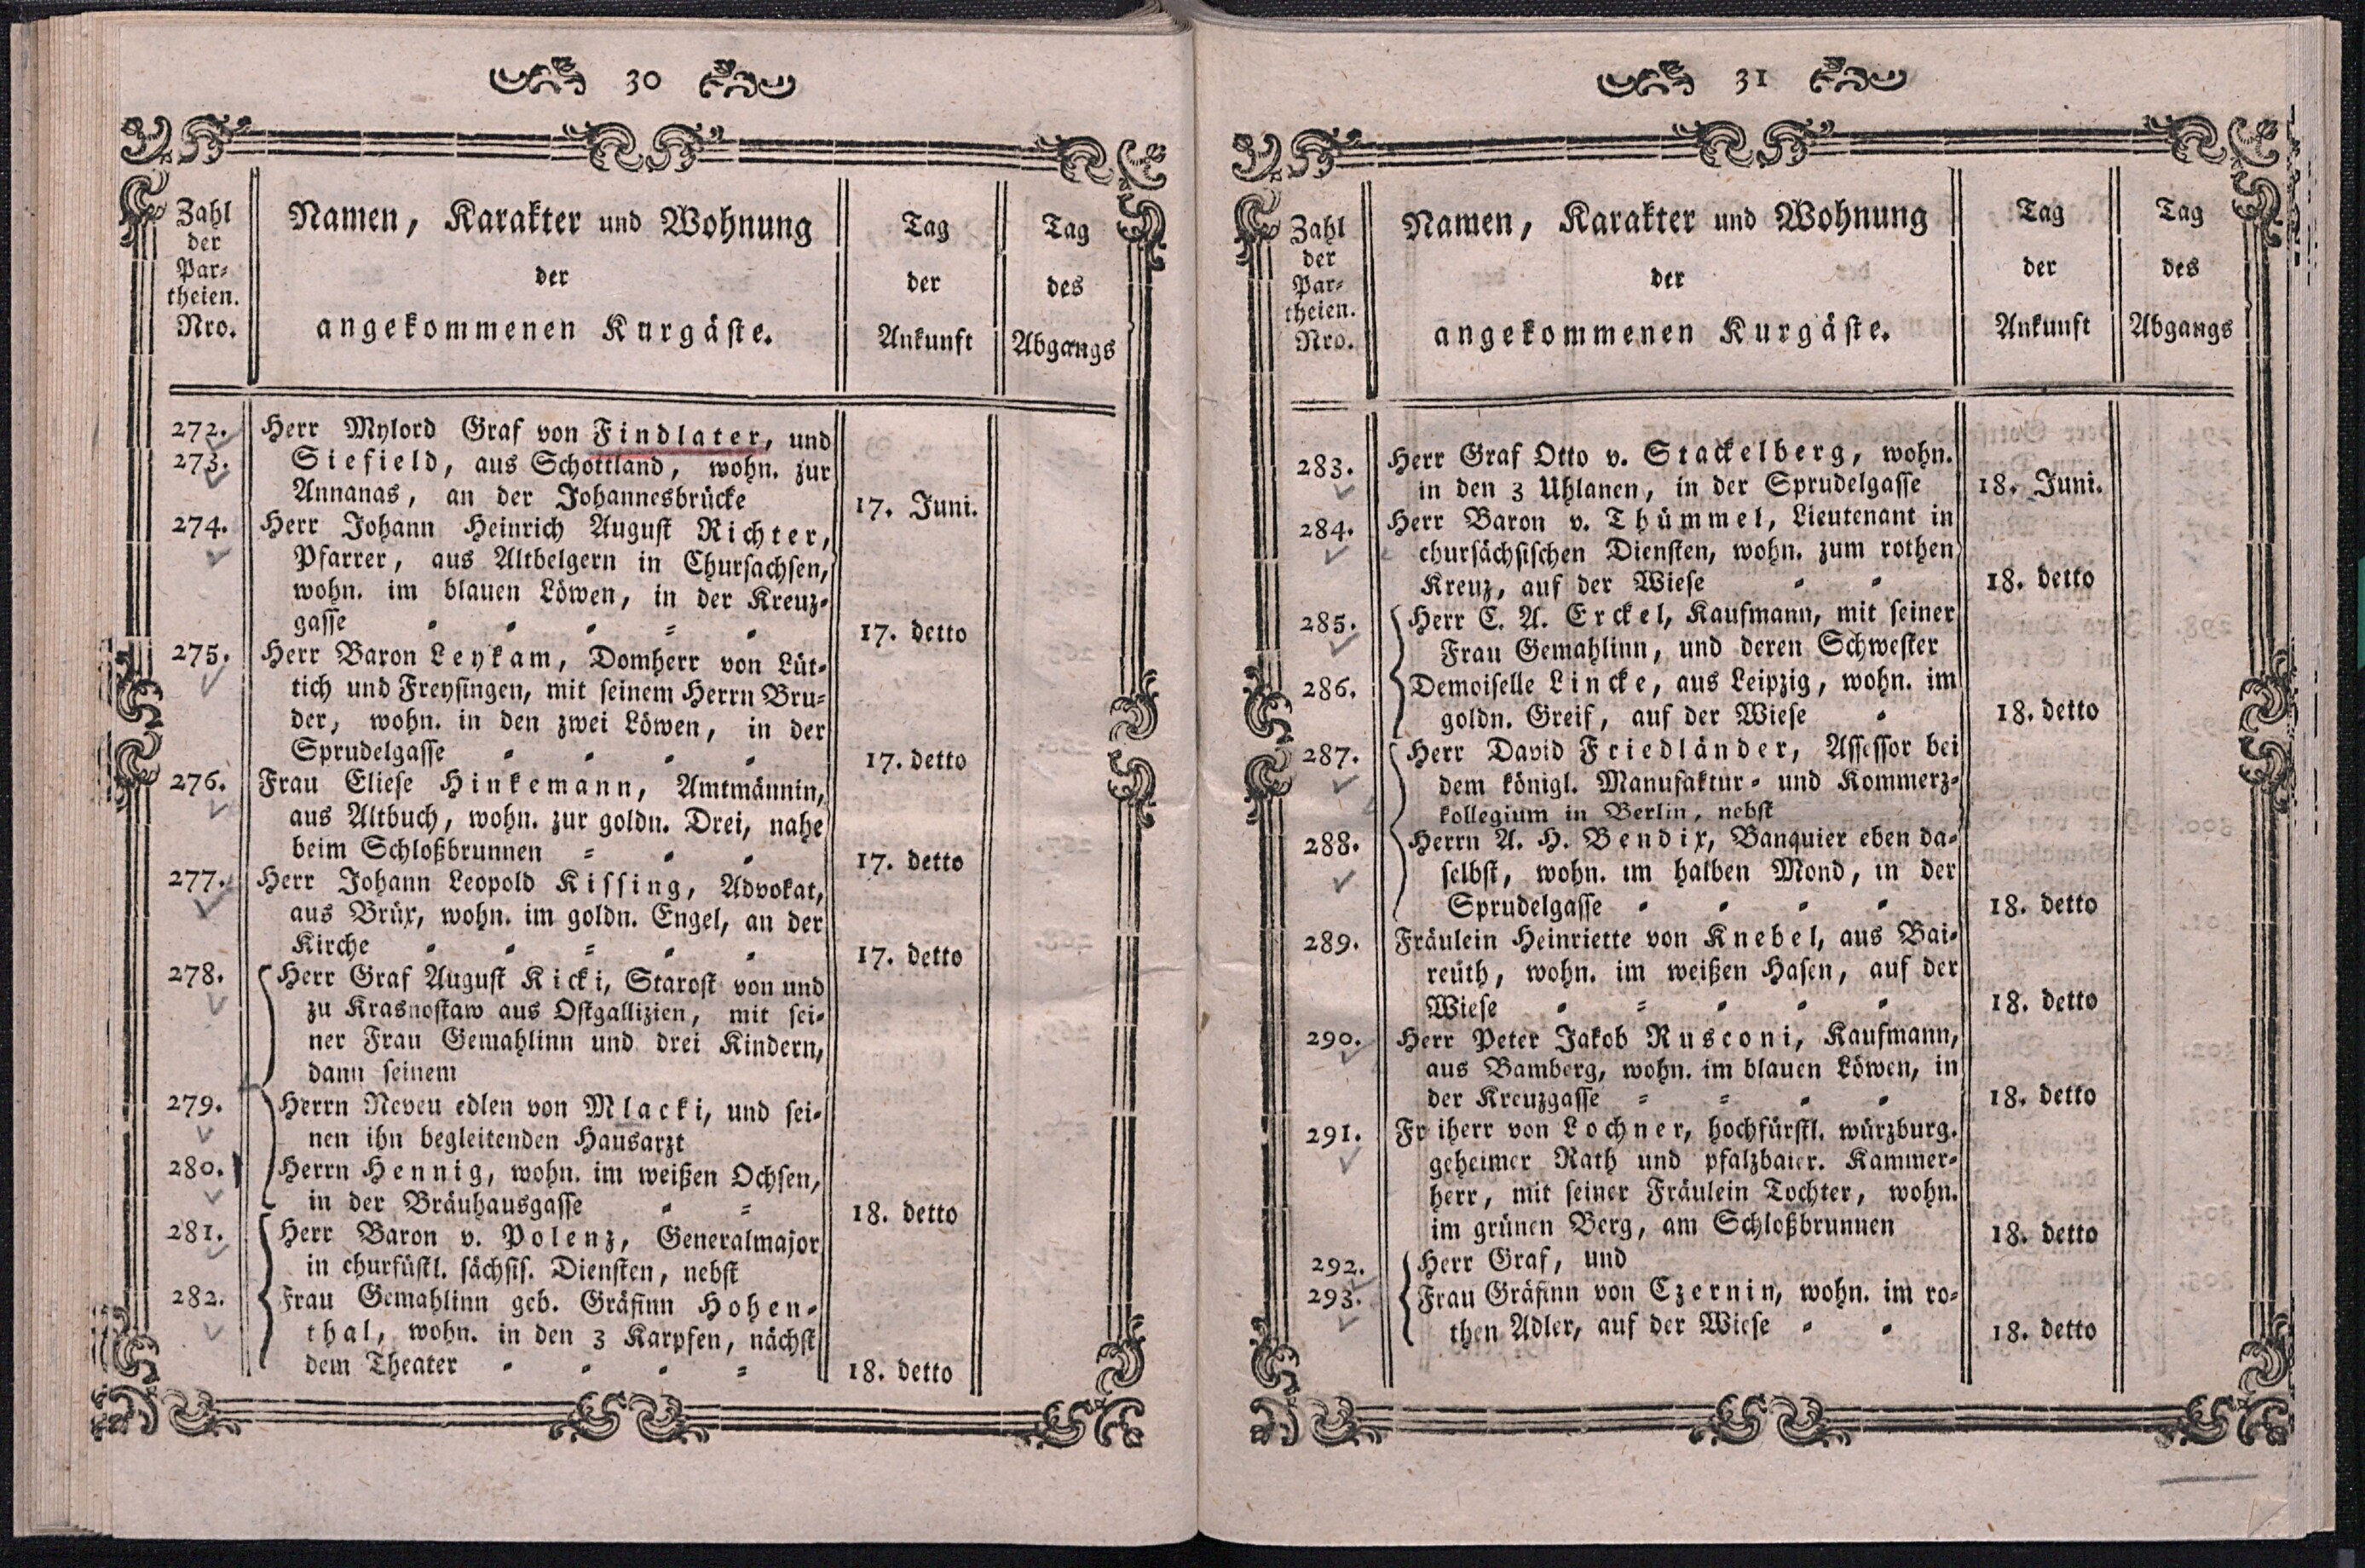 30
Zahl
der
Par-
theien.
Nro.
Namen, Karakter und Wohnung
der
angekommenen Kurgäste.
Tag
der
Ankunft
Tag
des
Abgangs
272. Herr Mylord Graf von Findlater, und
273. Siefield, aus Schottland, wohn. zur
Annanas, an der Johannesbrücke 17. Juni.
274. Herr Johann Heinrich August Richter,
Pfarrer, aus Altbelgern in Chursachsen,
wohn. im blauen Löwen, in der Kreuz-
gasse 17. detto
275. Herr Baron Leykam, Domherr von Lüt-
tich und Freysingen, mit seinem Herrn Bru-
der, wohn. in den zwei Löwen, in der
Sprudelgasse 17. detto
276. Frau Eliese Hinkemann, Amtmännin,
aus Altbuch, wohn. zur goldn. Drei, nahe
beim Schloßbrunnen 17. detto
277. Herr Johann Leopold Kissing, Advokat,
aus Brüx, wohn. im goldn. Engel, an der
Kirche 17. detto
278. Herr Graf August Kicki, Starost von und
zu Krasnostaw aus Ostgallizien, mit sei-
ner Frau Gemahlinn und drei Kindern,
dann seinem
279. Herrn Neveu edlen von Mlacki, und sei-
nen ihn begleitenden Hausarzt
280. Herrn Hennig, wohn. im weißen Ochsen,
in der Bräuhausgasse 18. detto
281. Herr Baron v. Polenz, Generalmajor
in churfüstl. sächsis. Diensten, nebst
282. Frau Gemahlinn geb. Gräfinn Hohen-
thal, wohn. in den 3 Karpfen, nächst
dem Theater 18. detto
31
Zahl
der
Par-
theien.
Nro.
Namen, Karakter und Wohnung
der
angekommenen Kurgäste.
Tag
der
Ankunft
Tag
des
Abgangs
283. Herr Graf Otto v. Stackelberg, wohn.
in den 3 Uhlanen, in der Sprudelgasse 18. Juni.
284. Herr Baron v. Thümmel, Lieutenant in
chursächsischen Diensten, wohn. zum rothen
Kreuz, auf der Wiese 18. detto
285. Herr C. A. Erckel, Kaufmann, mit seiner
Frau Gemahlinn, und deren Schwester
286. Demoiselle Lincke, aus Leipzig, wohn. im
goldn. Greif, auf der Wiese 18. detto
287. Herr David Friedländer, Assessor bei
dem königl. Manufaktur- und Kommerz-
kollegium in Berlin, nebst
288. Herrn A. H. Bendix, Banquier eben da-
selbst, wohn. im halben Mond, in der
Sprudelgasse 18. detto
289. Fräulein Heinriette von Knebel, aus Bai-
reuth, wohn. im weißen Hasen, auf der
Wiese 18. detto
290. Herr Peter Jakob Rusconi, Kaufmann,
aus Bamberg, wohn. im blauen Löwen, in
der Kreuzgasse 18. detto
291. Fr iherr von Lochner, hochfürstl. würzburg.
geheimer Rath und pfalzbaier. Kammer-
herr, mit seiner Fräulein Tochter, wohn.
im grünen Berg, am Schloßbrunnen 18. detto
292. Herr Graf, und
293. Frau Gräfinn von Czernin, wohn. im ro-
then Adler, auf der Wiese 18. detto